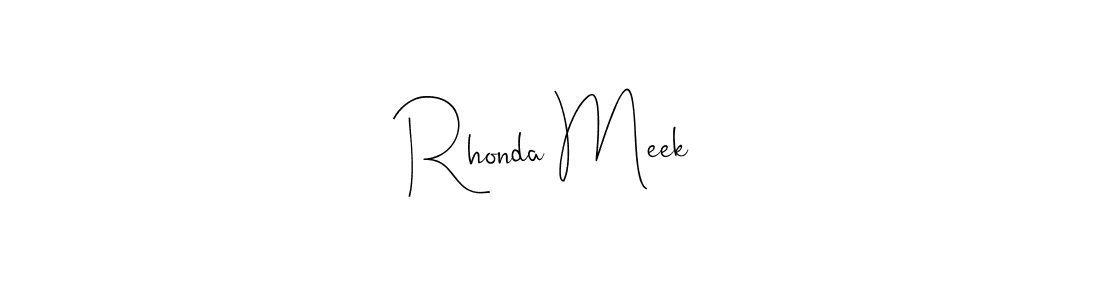 Rhonda Meek